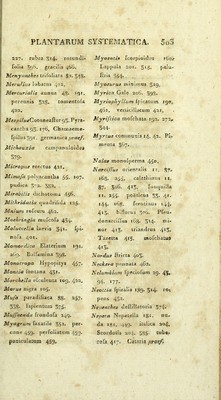 PLANTARUM SYSTEMATICA. 503
227. rubra 314. rotundi-
folia 396. gracilis 466.
Menyanthes trifoliata 82. 319.
Merulius lobatus 401.
Mercurialis annua 48. 191.
perennis 398. tomentosa
402.
Mespilus Cotoneaster 93. Pyra-
cantha 93. 176. Chamaeme-
spilus 391. germanica praef.
Michauxia campanuloides
329.
Micropus erectus 421.
Mimosa polyacantha 55. 107.
pudica 314. 329.
Mirabilis dichotoma 456.
Mithridatea quadrifida 125.
Molium roseum 462.
Moehringia muscosa 434.
Moluccella laevis 341. spi-
nosa 401.
Momordica Elaterium 191.
417. Balsamina 398.
Monotropa Hypopitys 457.
Montia fontana 451.
Morchella esculenta 109. 402.
Morus nigra 205.
Musa paradisiaca 88. 257.
338. sapientum 375.
Mussaenda frondosa 249.
Myagrum saxatile 352. per-
enne 459. perfoliatum 459.
paniculatum 459.
Myosotis scorpioides 169.
Lappula 201. 314. palu-
stris 394.
Myosurus minimus 319.
Myrica Gale 206. 395.
Myriophyllum spicatum 190.
401. verticillatum 401.
Myristica moschata 192. 272.
344.
Myrtus communis 14. 92. Pi-
menta 367.
Najas monosperma 450.
Narcissus orientalis 11. 87.
163. 295. calathinus 11.
87. 306. 413. Jonquilla
11. 255. poëticus 33. 41.
144. 168. ferotinus 144.
413. biflorus 304. Pseu-
donarcissus 168. 314. mi-
nor 413. triandrus 413.
Tazetta 413. moschatus
413.
Nardus stricta 405.
Neckera pennata 462.
Nelumbium speciosum 29. 43.
92. 177.
Neottia spiralis 189. 314. re-
pens 452.
Nepenthes destillatoria 314.
Nepeta Nepetella 181. nu-
da 181. 409. italica 204.
Scordotis 204. 395. tube-
rosa 417. Cataria praef.